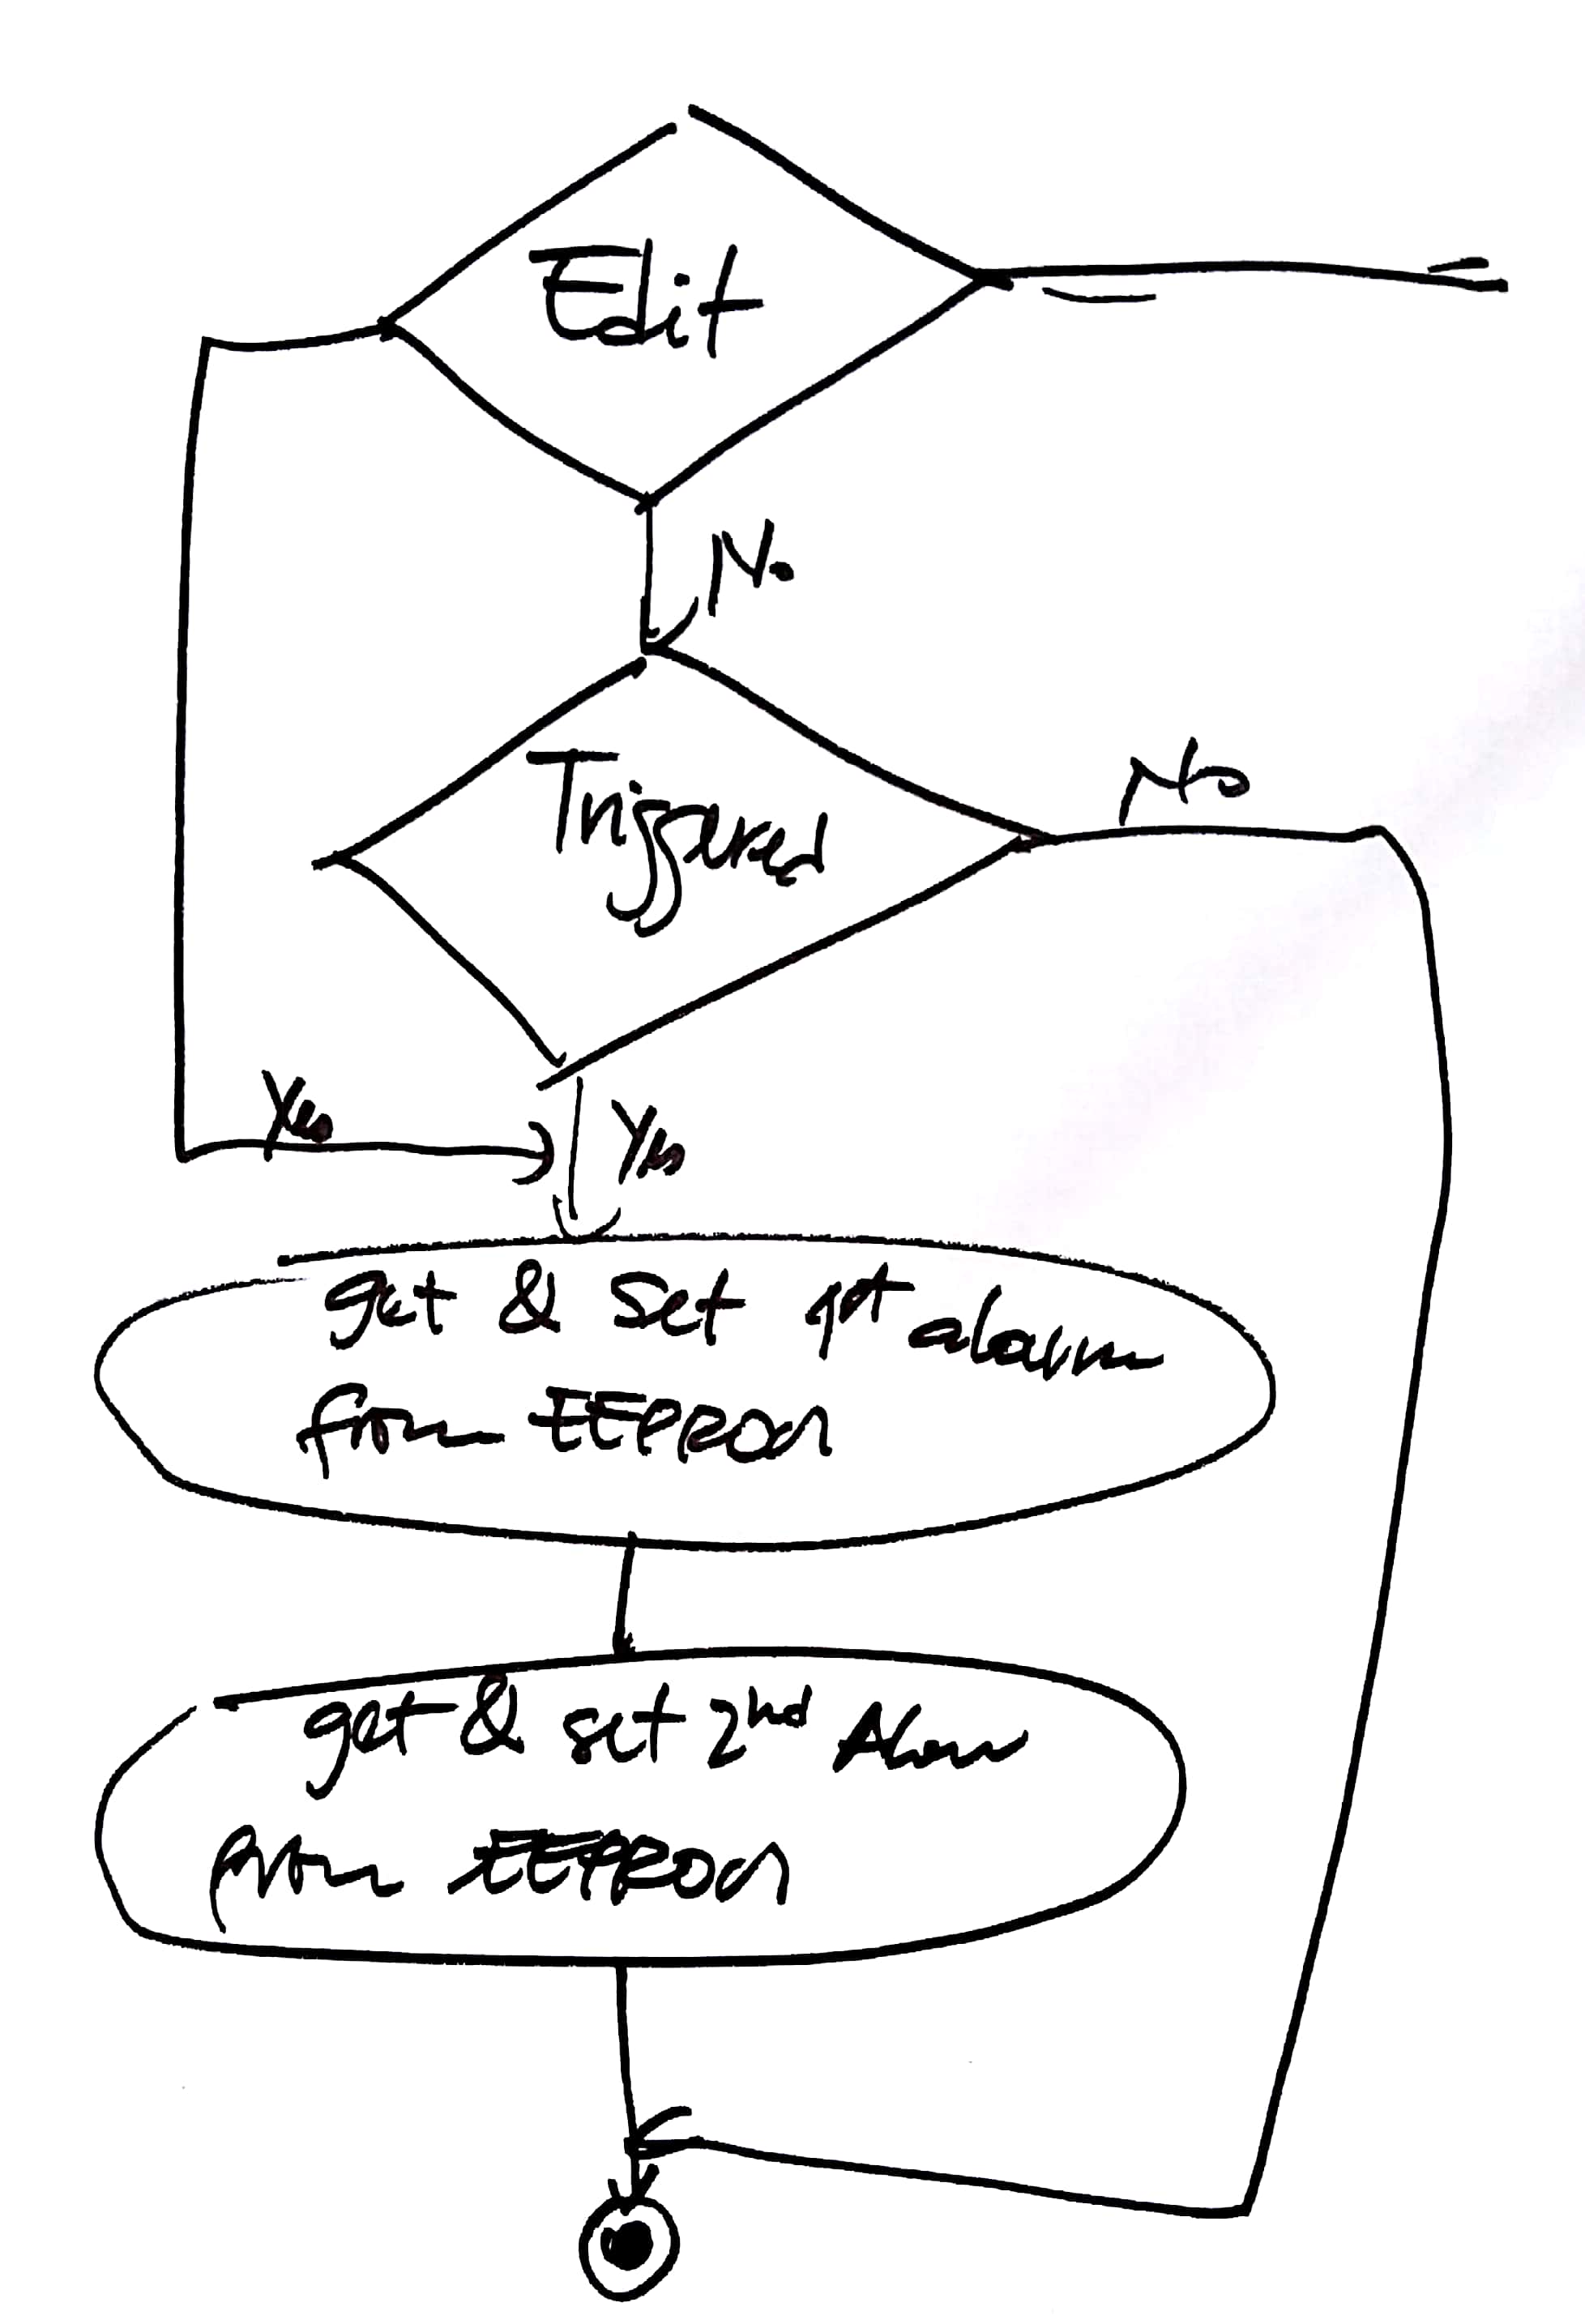 Edit
No
Triggered
No
Yes
Yes
get & set 1st alarm
from EEPROM
get & set 2nd Alarm
from EEPROM